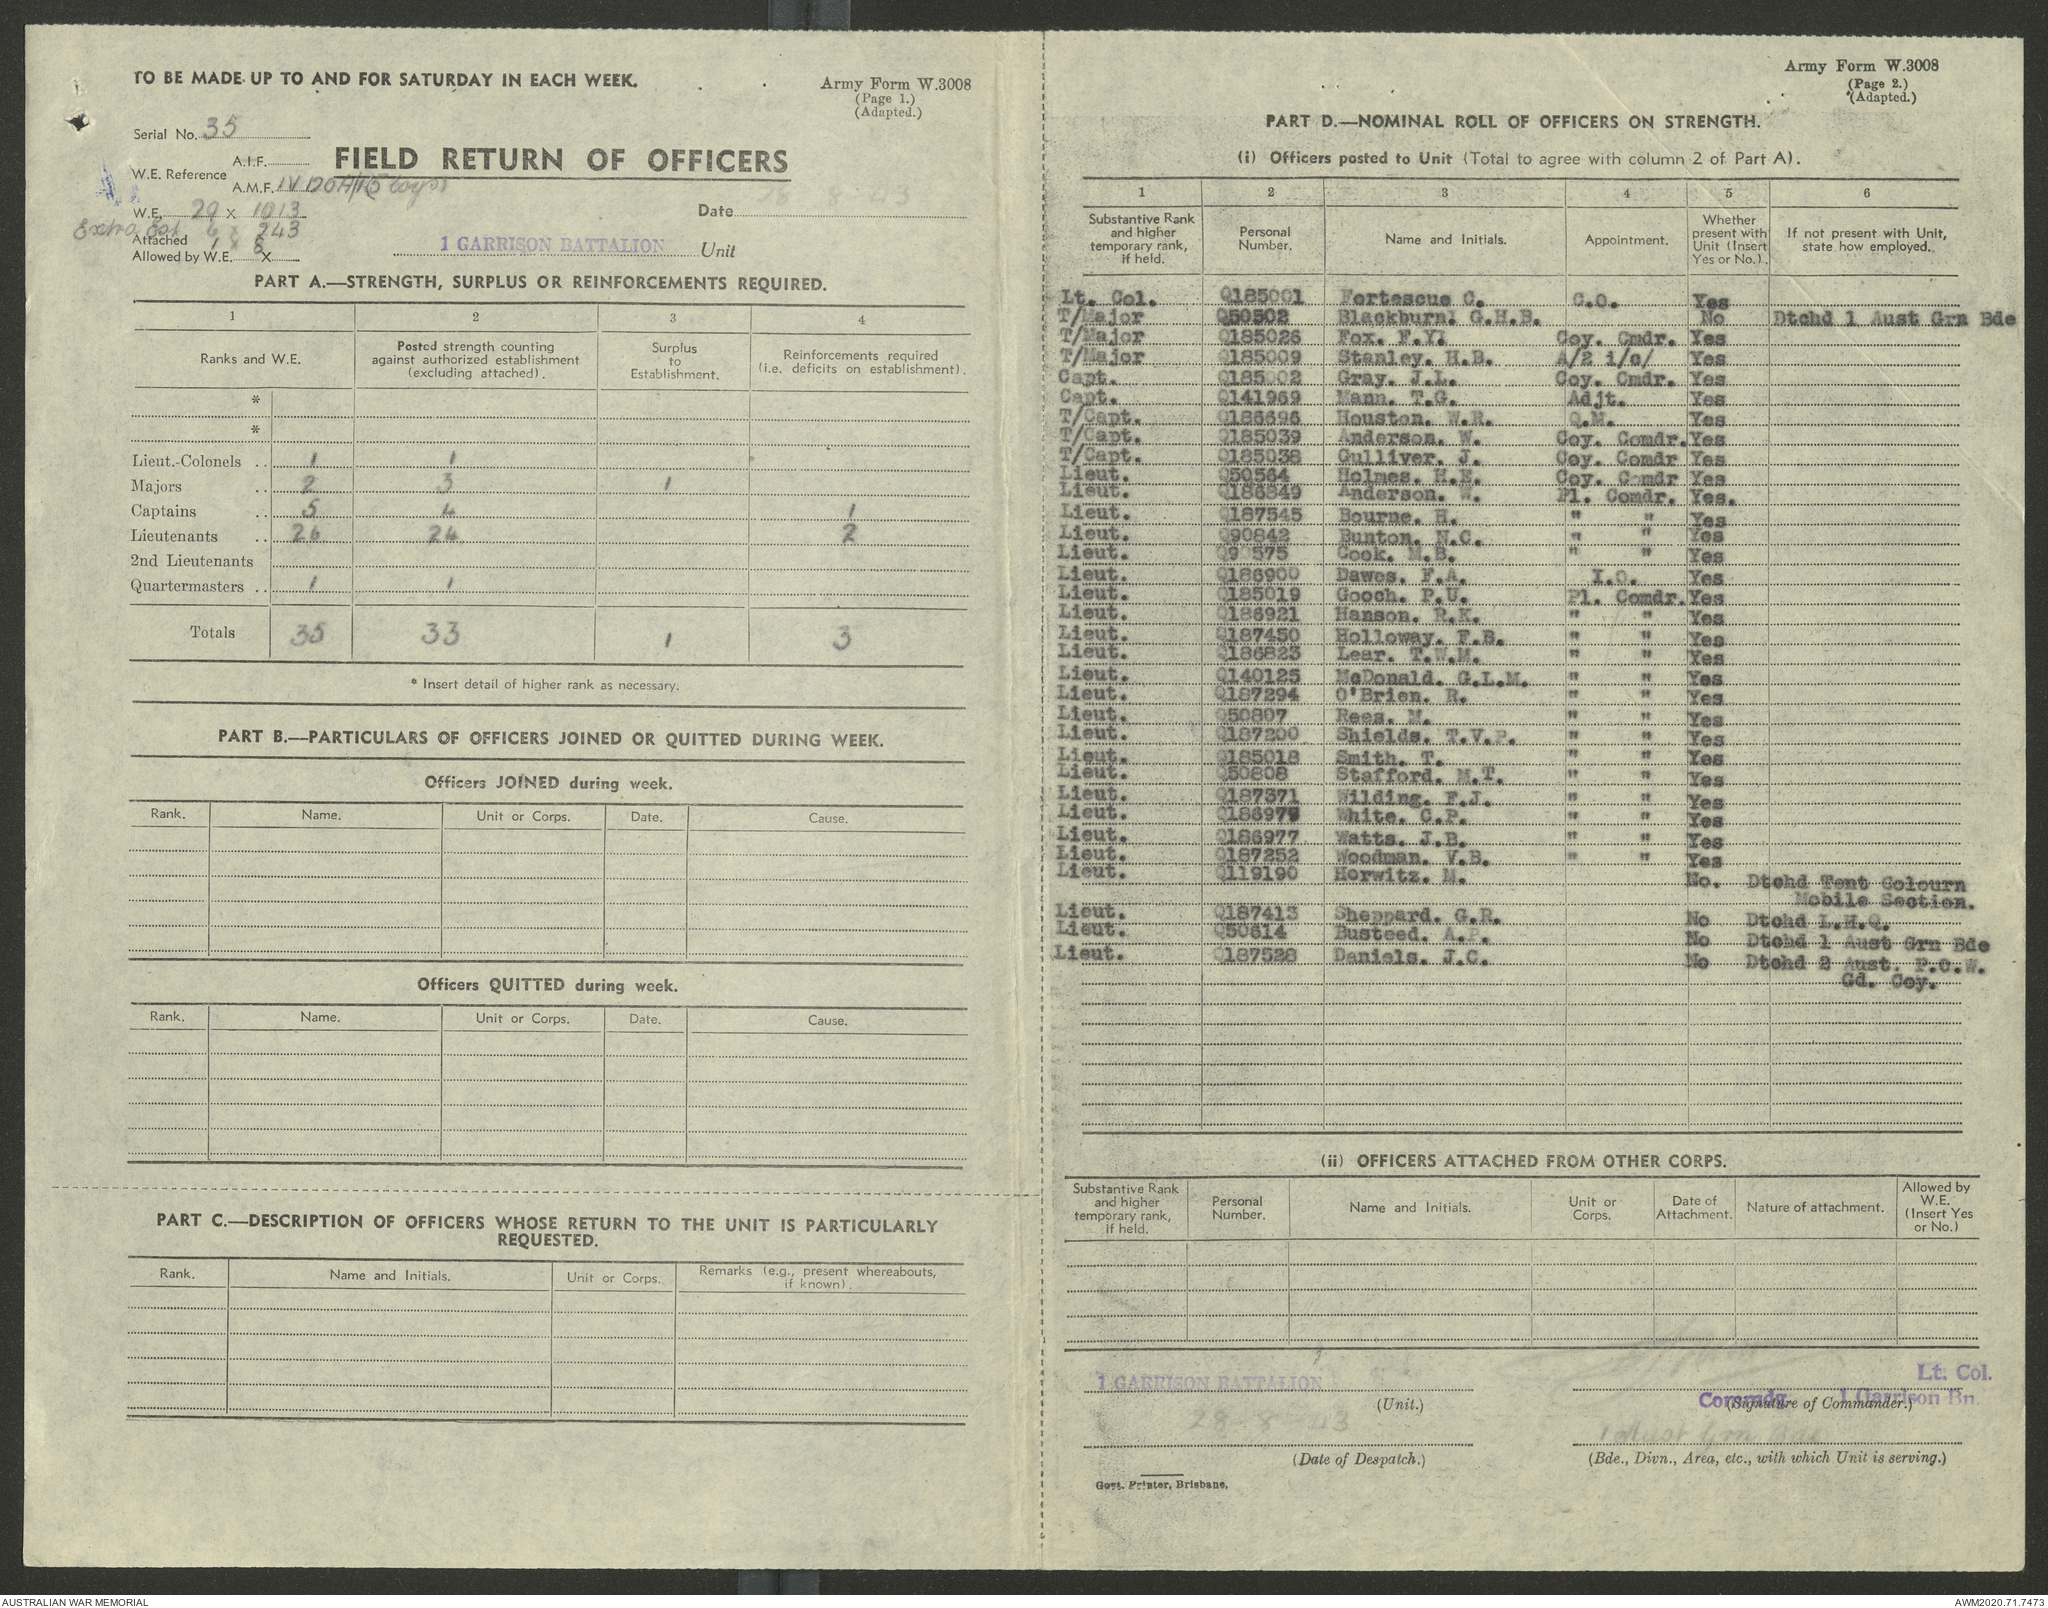 TO BE MADE UP TO AND FOR SATURDAY IN EACH WEEK.
Army Form W.3008
(Page 1.)
(Adapted.)
Serial No. 35
FIELD RETURN OF OFFICERS
W.E. Reference
A.I.F.
A.M.F. IV
W.E. 29 x 1013
Date 28 8 43
Extra Est 6 x 243
Attached 1 x 8
Allowed by W.E. x
1 GARRISON BATTALION Unit
PART A.—STRENGTH, SURPLUS OR REINFORCEMENTS REQUIRED.
1 2 3 4
Ranks and W.E.
Posted strength counting against authorized establishment (excluding attached).
Surplus to Establishment.
Reinforcements required (i.e. deficits on establishment).
*
*
Lieut.-Colonels .. 1 1
Majors .. 2 3 1
Captains .. 5 4 1
Lieutenants .. 26 24 2
2nd Lieutenants
Quartermasters .. 1 1
Totals 35 33 1 3
* Insert detail of higher rank as necessary.
PART B.—PARTICULARS OF OFFICERS JOINED OR QUITTED DURING WEEK.
Officers JOINED during week.
Rank. Name. Unit or Corps. Date. Cause.
Officers QUITTED during week.
Rank. Name. Unit or Corps. Date. Cause.
PART C.—DESCRIPTION OF OFFICERS WHOSE RETURN TO THE UNIT IS PARTICULARLY
REQUESTED.
Rank. Name and Initials. Unit or Corps. Remarks (e.g., present whereabouts, if known).
Army Form W.3008
(Page 2.)
(Adapted.)
PART D.—NOMINAL ROLL OF OFFICERS ON STRENGTH.
(i) Officers posted to Unit (Total to agree with column 2 of Part A).
1 2 3 4 5 6
Substantive Rank and higher temporary rank, if held.
Personal Number.
Name and Initials.
Appointment.
Whether present with Unit (Insert Yes or No.)
If not present with Unit, state how employed.
Lt. Col. Q185001 Fortescue C. C.O. Yes
T/Major Q50502 Blackburn. G.H.B. No Dtchd 1 Aust Grn Bde
T/Major Q185026 Fox. F.Y. Coy. Cmdr. Yes
T/Major Q185009 Stanley. H.B. A/2 i/c/ Yes
Capt. Q185002 Gray. J.L. Coy. Cmdr. Yes
Capt. Q141969 Mann. T.G. Adjt. Yes
T/Capt. Q186696 Houston. W.R. Q.M. Yes
T/Capt. Q185039 Anderson. W. Coy. Comdr. Yes
T/Capt. Q185038 Gulliver. J. Coy. Comdr Yes
Lieut. Q50564 Holmes. H.E. Coy. Comdr Yes
Lieut. Q186849 Anderson. W. Pl. Comdr. Yes.
Lieut. Q187545 Bourne. H. " " Yes
Lieut. Q90842 Bunton. N.C. " " Yes
Lieut. Q90575 Cook. M.B. " " Yes
Lieut. Q186900 Dawes. F.A. I.O. Yes
Lieut. Q185019 Gooch. P.U. Pl. Comdr. Yes
Lieut. Q186921 Hanson. R.K. " " Yes
Lieut. Q187450 Holloway. F.B. " " Yes
Lieut. Q186823 Lear. T.W.M. " " Yes
Lieut. Q140125 McDonald. G.L.M. " " Yes
Lieut. Q187294 O'Brien. R. " " Yes
Lieut. Q50807 Rees. M. " " Yes
Lieut. Q187200 Shields. T.V.P. " " Yes
Lieut. Q185018 Smith. T. " " Yes
Lieut. Q50808 Stafford. M.T. " " Yes
Lieut. Q187371 Wilding. F.J. " " Yes
Lieut. White. C.P. " " Yes
Lieut. Q186977 Watts. J.B. " " Yes
Lieut. Q187252 Woodman. V.B. " " Yes
Lieut. Q119190 Horwitz. M. No. Dtchd Tent Colourn
Mobile Section.
Lieut. Q187413 Sheppard. G.R. No Dtchd L.H.Q.
Lieut. Q50614 Busteed. A.P. No Dtchd 1 Aust Grn Bde
Lieut. Q187528 Daniels. J.C. No Dtchd 2 Aust. P.O.W.
Gd. Coy.
(ii) OFFICERS ATTACHED FROM OTHER CORPS.
Substantive Rank and higher temporary rank, if held.
Personal Number.
Name and Initials.
Unit or Corps.
Date of Attachment.
Nature of attachment.
Allowed by W.E. (Insert Yes or No.)
1 GARRISON BATTALION
(Unit.)
Lt. Col.
Commdg. 1 Garrison Bn.
(Signature of Commander.)
28 - 8 - 43
(Date of Despatch.)
1 Aust Grn Bde
(Bde., Divn., Area, etc., with which Unit is serving.)
Govt. Printer, Brisbane.
AUSTRALIAN WAR MEMORIAL
AWM2020.71.7473